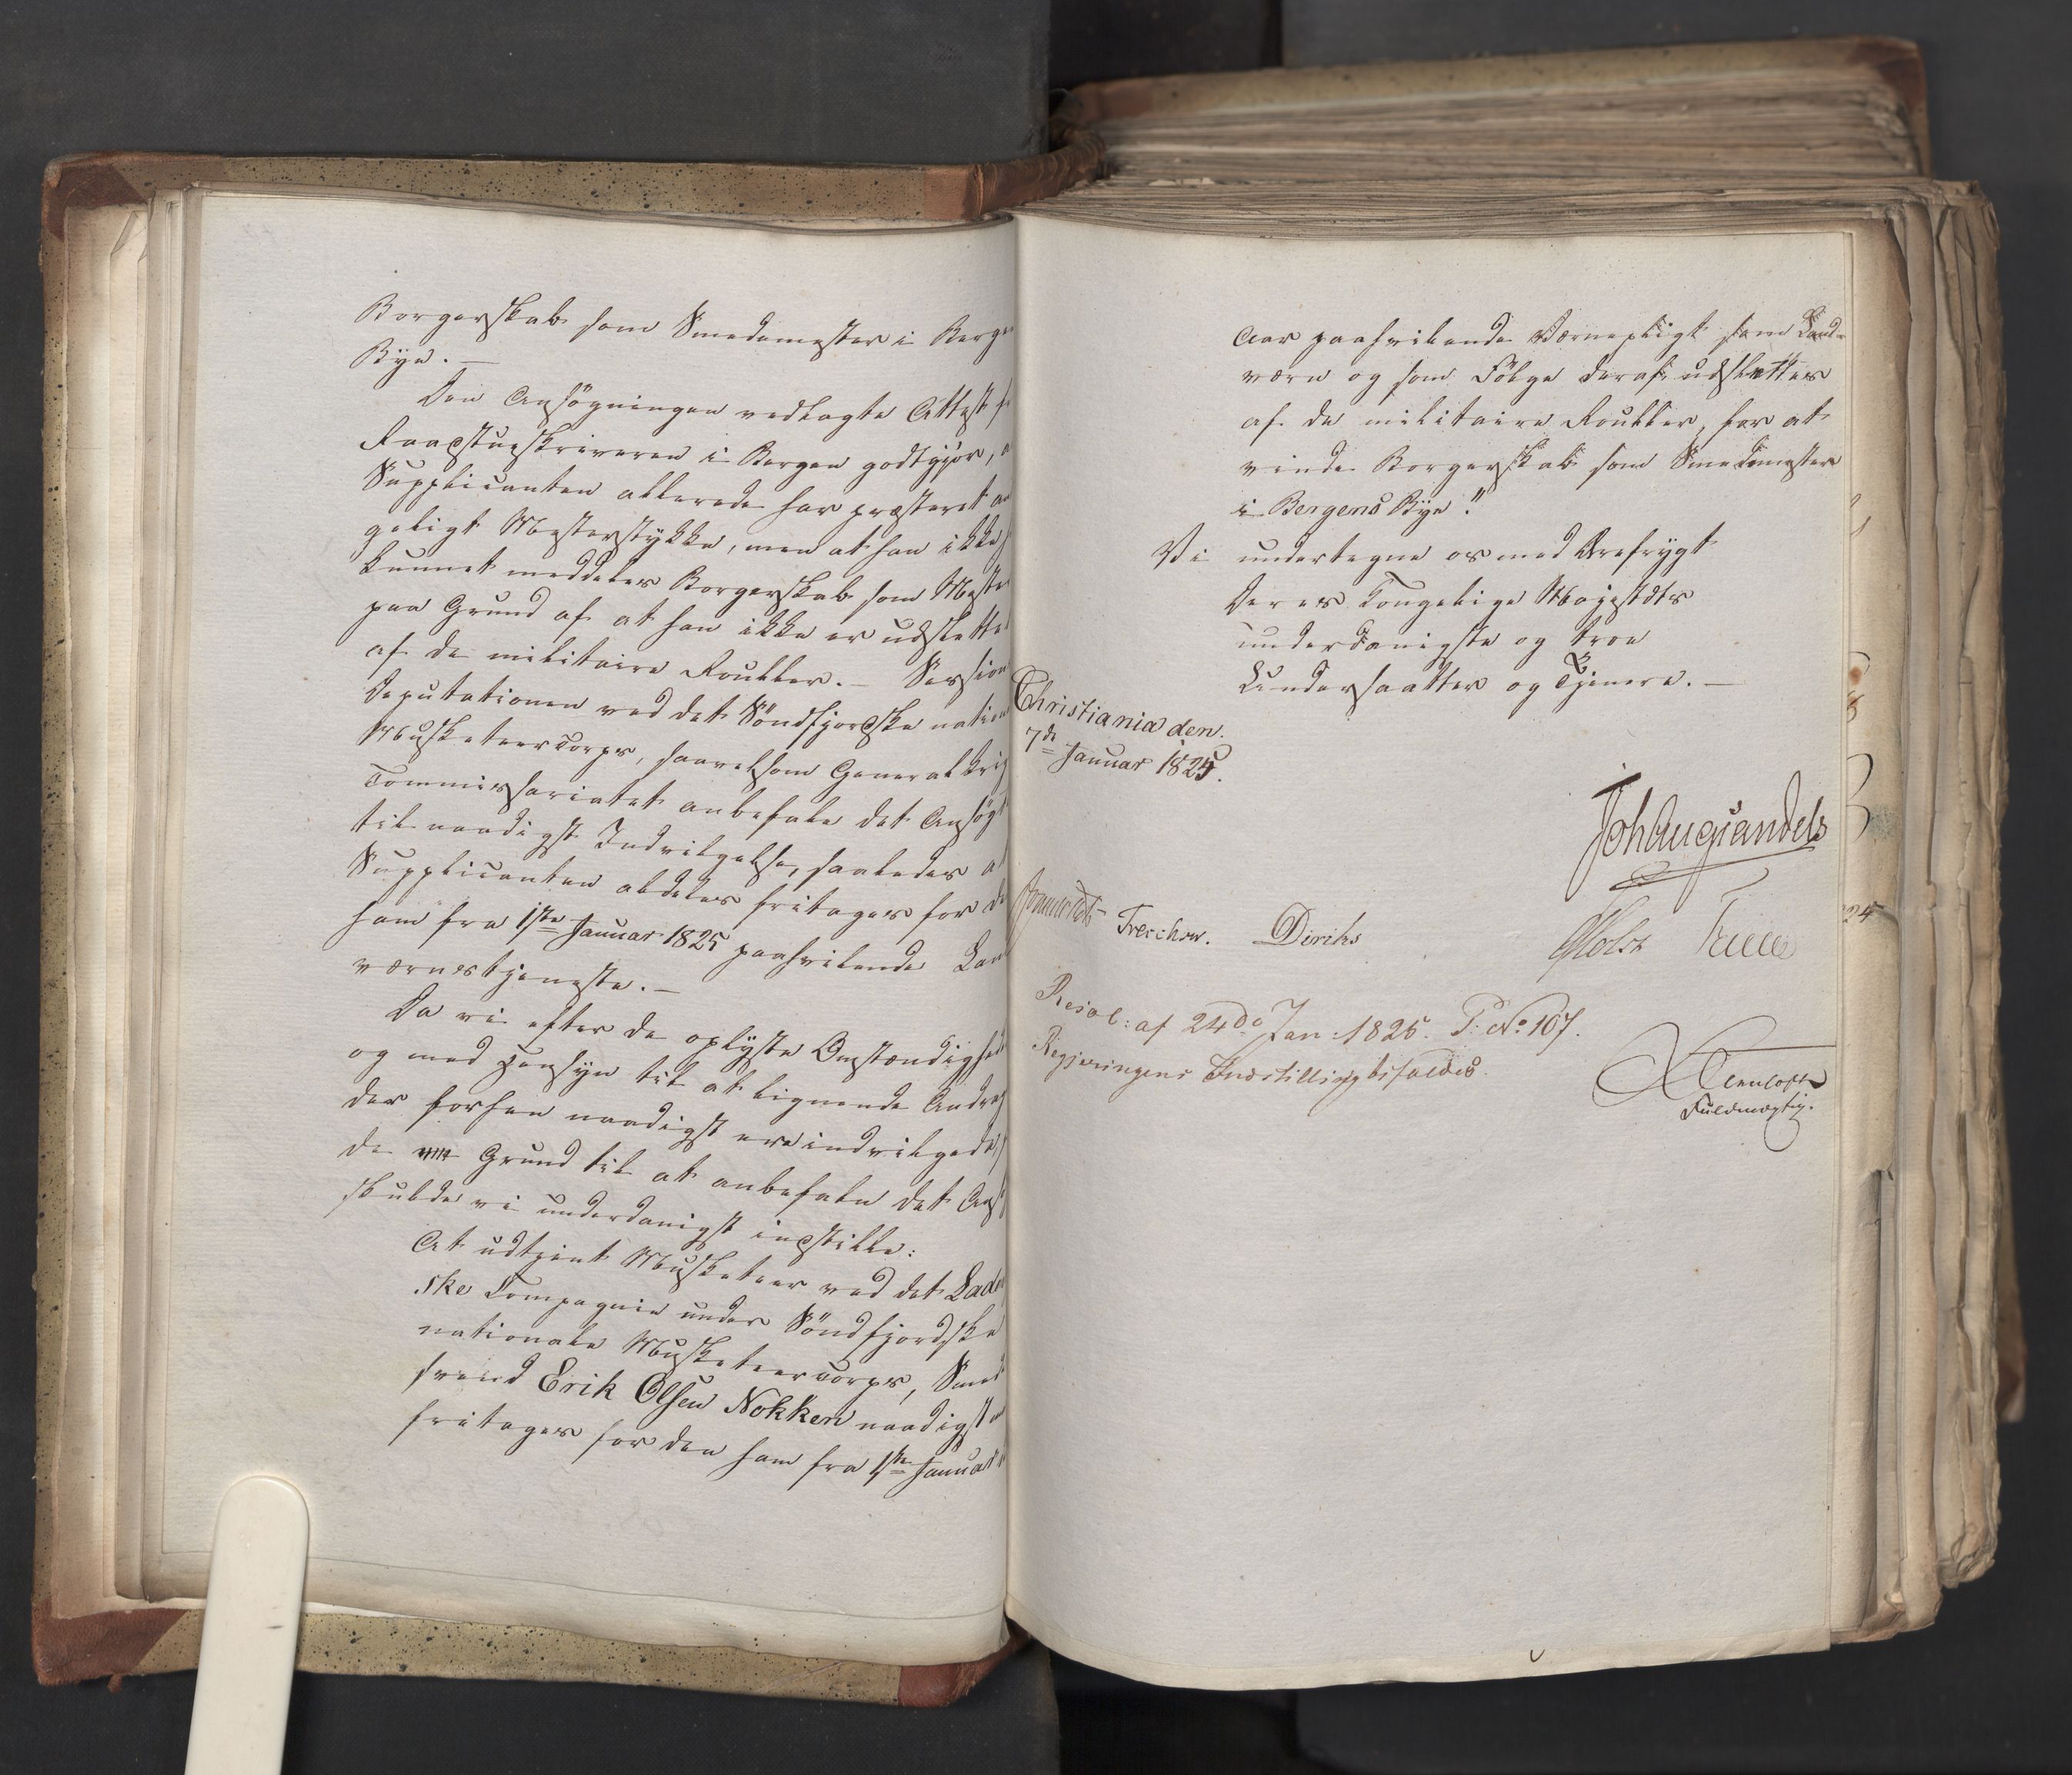 Borgerskab som Smedemester i Berge
Bye. —
Den Ansøgningen vedlagte Attest f
Raadstueskriveren i Bergen godtgjør, a
Supplicanten allerede har præsteret an
geligt Mesterstykke, men at han ikke
kunnet meddeles Borgerskab som Meste
paa Grund af at han ikke er udslette
af de militaire Rouller. — Session
Deputationen ved det Søndfjordske nation
Musketeercorps, saavelsom General Krig
Commissariatet anbefale det Ansøgt
til naadigst Indvilgelse, saaledes a
Supplicanten aldeles fritages for de
ham fra 1ste Januar 1825 paahvilende Lan
værnstjeneste. —
Da vi efter de oplyste Omstændighed
og med Hensyn til at lignende Andrag
der forhen naadigst ere indvilgede,
de Grund til at anbefale det Ans
skulde vi underdanigst indstille:
At udtjent Musketeer ved det Lade
ske Compagnie under Søndfjordske
nationale Musketeercorps, Smed
svend Erik Olsen Nokken naadigst
fritages for den ham fra 1ste Januar
Aar paahvilende Værnepligt som Land-
værn og som Følge deraf udslettes
af de militaire Rouller, for at
vinde Borgerskab som Smedemester
i Bergens Bye."
Vi undertegne os med Ærefrygt
Deres Kongelige Majestæts
underdanigste og troe
Undersaatter og Tjenere. —
Christiania den
7de Januar 1825.
Joh Aug Sandels
Sommerfeldt Treschow. Diriks Holst
Resol: af 24de Jan: 1825. P: No 107.
Regjeringens Indstilling bifaldes.
Fuldmægtig.